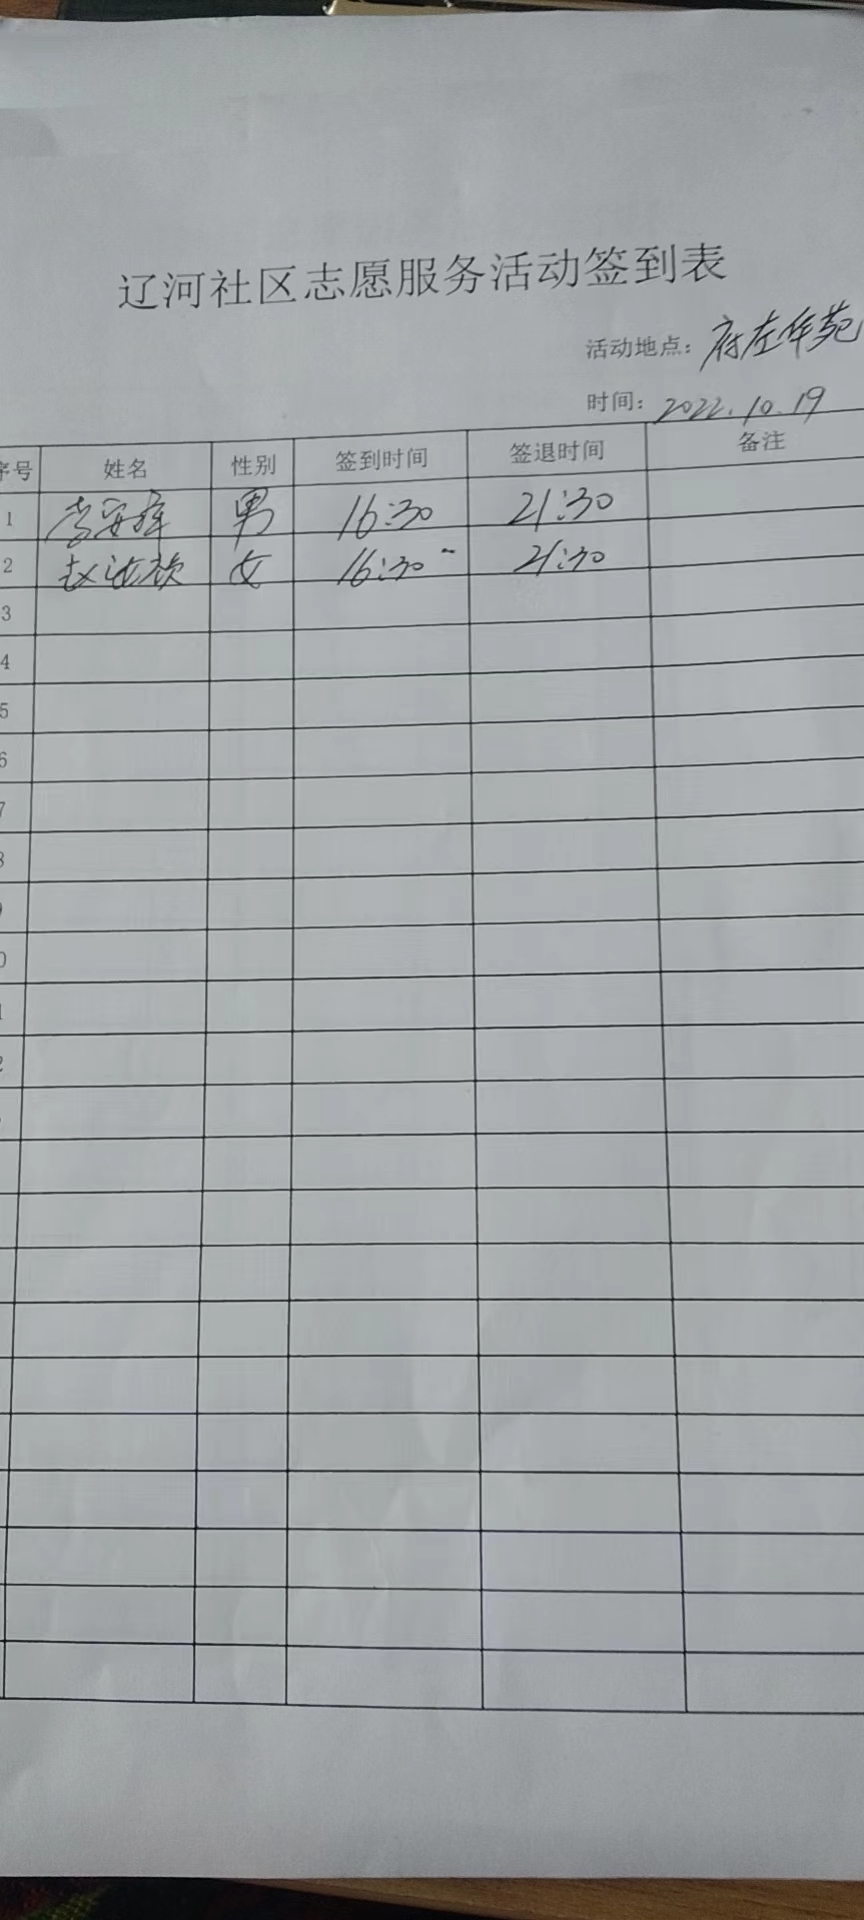 辽河社区志愿服务活动签到表
活动地点：府左华苑
时间：2022.10.19
序号 姓名 性别 签到时间 签退时间 备注
1 李安 男 16:30 21:30
2 赵 女 16:30 21:30
3
4
5
6
7
8